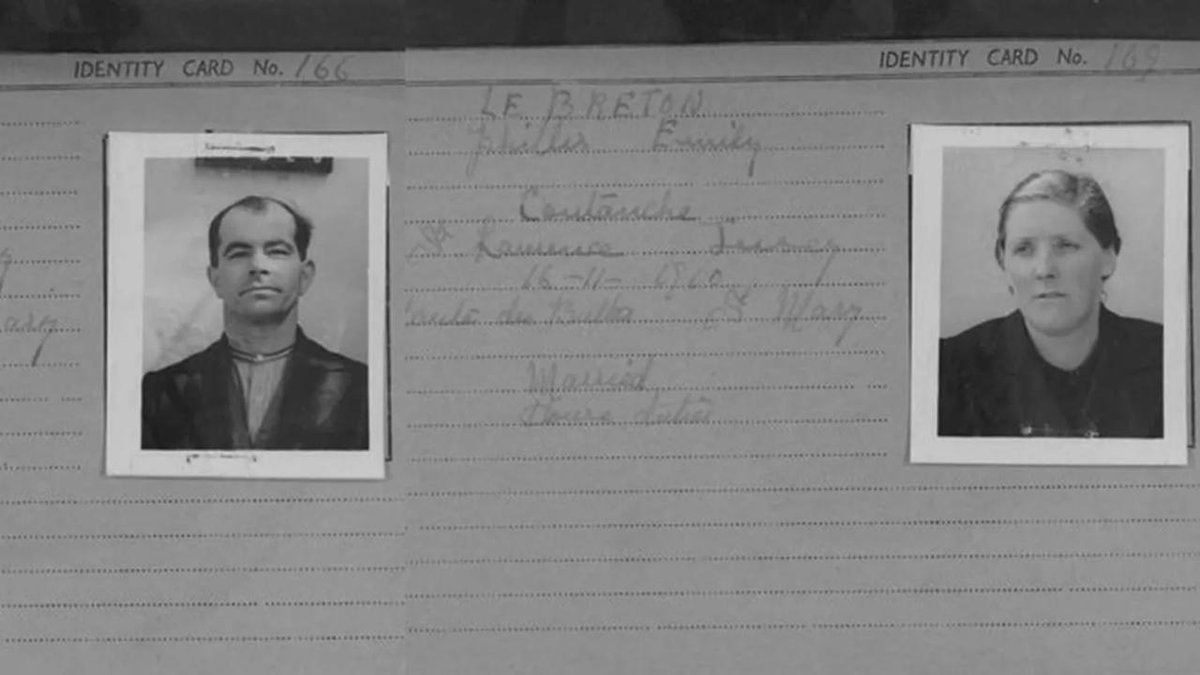 IDENTITY CARD No. 166
IDENTITY CARD No. 169
LE BRETON
Phillis Emily
Coutanche
St Lawrence Jersey
16-11-
St Mary
Married
House duties
ary